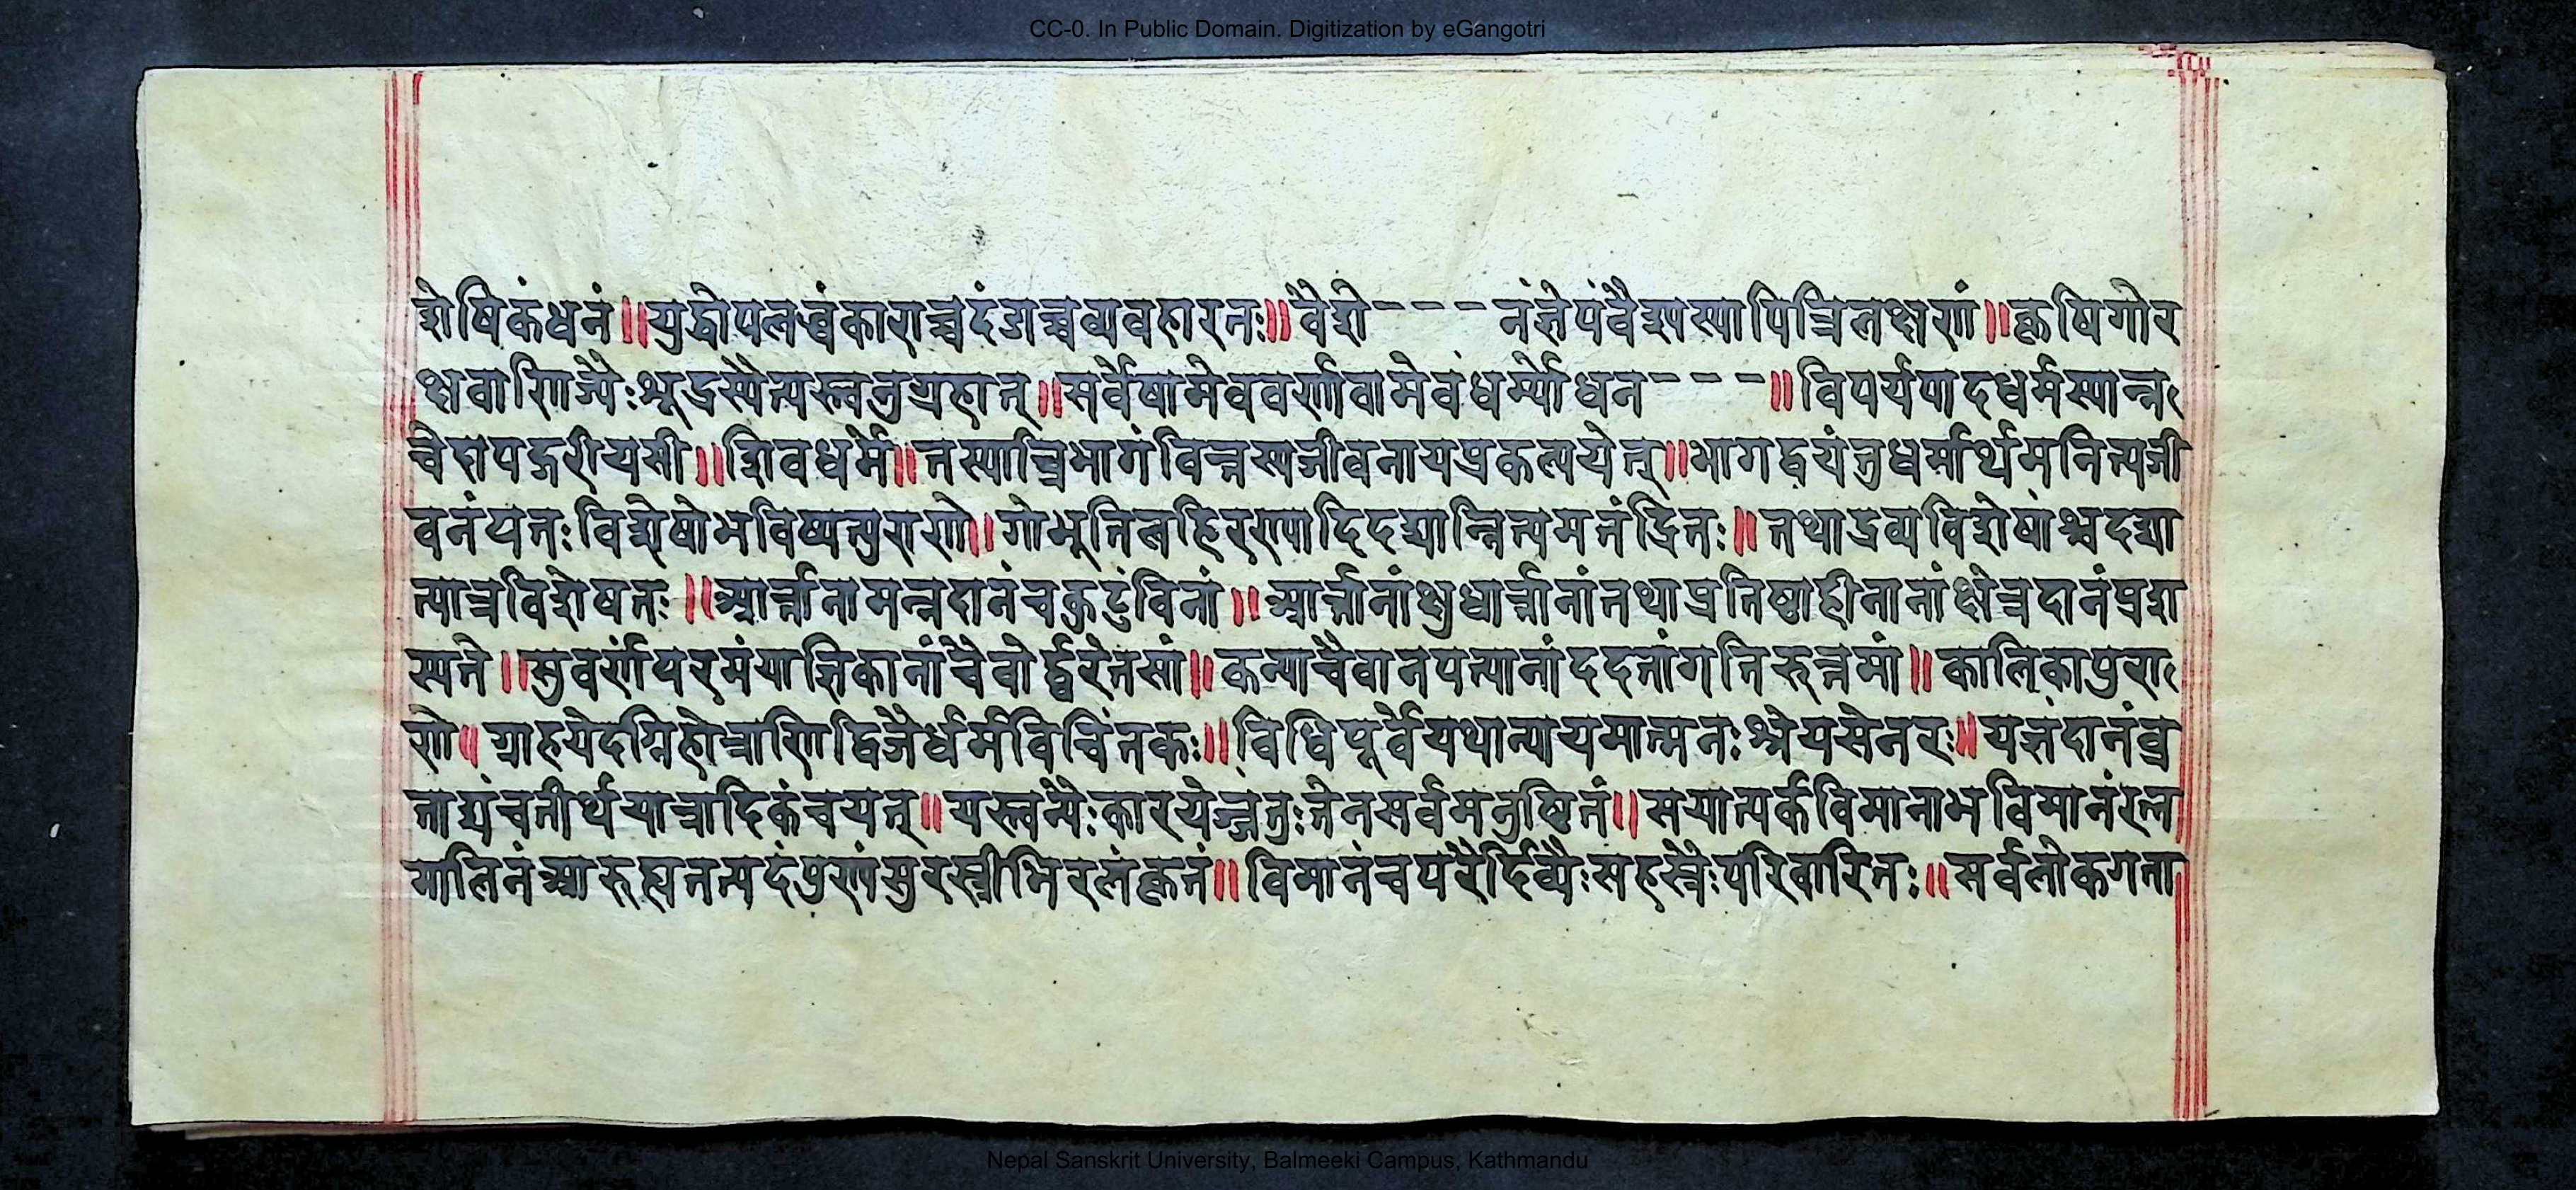 CC-0. In Public Domain. Digitization by eGangotri
शेषिकं धनं ॥ युद्धोपलब्धं काराच्च दंडाच्च व्यवहारतः ॥ वैशे - - - नं ज्ञेयं वैश्यस्यापि त्रिलक्षणं ॥ कृषिगोर
क्षवाणिज्यैः शूद्रस्यैत्यस्त्वनुग्रहात् ॥ सर्वेषामेव वर्णावामेवं धर्म्यो धन - - - ॥ विपर्ययादधर्मस्यान्न
चेदापद्गरीयसी ॥ शिवधर्मे ॥ तस्यात्त्रिभागं वित्तस्य जीवनाय प्रकल्पयेत् ॥ भागद्वयं तु धर्मार्थमनित्यजी
वनं यतः विशेषो भविष्यत्पुराणे ॥ गोभूतिलहिरण्यादि दद्यान्नित्यमतंद्रितः ॥ तथा द्रव्यविशेषांश्च दद्या
त्पात्रविशेषतः ॥ आर्त्तानामन्नदानं च कुटुंविनां ॥ आर्त्तानां क्षुधार्त्तानां तथा प्रतिष्ठाहीनानां क्षेत्रदानं प्रश
स्यते ॥ सुवर्णं परमं याज्ञिकानां चैवोर्द्ध्वरेतसां ॥ कन्या चैवानपत्यानां ददतां गतिरुत्तमां ॥ कालिकापुरा
णे ॥ ग्राहयेदग्निहोत्राणि द्विजैर्धर्मविचिंतकः ॥ विधिपूर्वं यथान्यायमात्मनः श्रेयसे नरः ॥ यज्ञं दानं व्र
ताद्यं च तीर्थयात्रादिकं च यत् ॥ यस्त्वन्यैः कारयेज्जंतुः तेन सर्वमनुष्ठितं ॥ स यात्यर्कविमानाभविमानं रत्न
मालिनं आरुह्य तत्पदं पुण्यं सुरस्त्रीभिरलंकृतं ॥ विमानं च परैर्दिव्यैः सहस्रैः परिवारितः ॥ सर्वलोकगता
Nepal Sanskrit University, Balmeeki Campus, Kathmandu